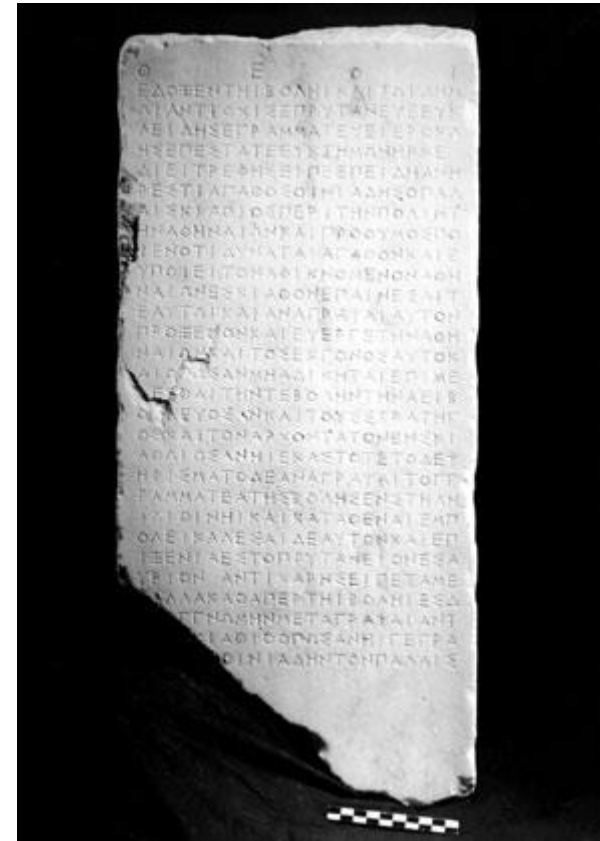 Θ Ε Ο Ι
ΕΔΟΞΕΝΤΗΙΒΟΛΗΙΚΑΙΤΩΙΔΗΜΩ
ΙΑΝΤΙΟΧΙΣΕΠΡΥΤΑΝΕΥΕΕΥΚ
ΛΕΙΔΗΣΕΓΡΑΜΜΑΤΕΥΕΙΕΡΟΚΛ
ΗΣΕΠΕΣΤΑΤΕΕΥΚΤΗΜΩΝΗΡΧΕ
ΔΙΕΙΤΡΕΦΗΣΕΙΠΕΕΠΕΙΔΗΑΝΗ
ΡΕΣΤΙΑΓΑΘΟΣΟΙΝΙΑΔΗΣΟΠΑΛ
ΑΙΣΚΙΑΘΙΟΣΠΕΡΙΤΗΝΠΟΛΙΝΤ
ΗΝΑΘΗΝΑΙΩΝΚΑΙΠΡΟΘΥΜΟΣΠΟ
ΙΕΝΟΤΙΔΥΝΑΤΑΙΑΓΑΘΟΝΚΑΙΕ
ΥΠΟΙΕΙΤΟΝΑΦΙΚΝΟΜΕΝΟΝΑΘΗ
ΝΑΙΩΝΕΣΚΙΑΘΟΝΕΠΑΙΝΕΣΑΙΤ
ΕΑΥΤΩΙΚΑΙΑΝΑΓΡΑΨΑΙΑΥΤΟΝ
ΠΡΟΞΕΝΟΝΚΑΙΕΥΕΡΓΕΤΗΝΑΘΗ
ΝΑΙΩΝΚΑΙΤΟΣΕΚΓΟΝΟΣΑΥΤΟΚ
ΑΙΟΠΩΣΑΝΜΗΑΔΙΚΗΤΑΙΕΠΙΜΕ
ΛΕΣΘΑΙΤΗΝΤΕΒΟΛΗΝΤΗΝΑΕΙΒ
ΟΛΕΥΟΣΑΝΚΑΙΤΟΥΣΣΤΡΑΤΗΓ
ΟΣΚΑΙΤΟΝΑΡΧΟΝΤΑΤΟΝΕΝΣΚΙ
ΑΘΩΙΟΣΑΝΗΙΕΚΑΣΤΟΤΕΤΟΔΕΨ
ΗΦΙΣΜΑΤΟΔΕΑΝΑΓΡΑΨΑΙΤΟΓΓ
ΡΑΜΜΑΤΕΑΤΗΣΒΟΛΗΣΕΝΣΤΗΛΗ
ΙΛΙΘΙΝΗΙΚΑΙΚΑΤΑΘΕΝΑΙΕΜΠ
ΟΛΕΙΚΑΛΕΣΑΙΔΕΑΥΤΟΝΚΑΙΕΠ
ΙΞΕΝΙΑΕΣΤΟΠΡΥΤΑΝΕΙΟΝΕΣΑ
ΥΡΙΟΝ ΑΝΤΙΧΑΡΗΣΕΙΠΕΤΑΜΕ
ΑΛΛΑΚΑΘΑΠΕΡΤΗΙΒΟΛΗΙΕΣΔ
ΓΓΝΩΜΗΝΜΕΤΑΓΡΑΨΑΙΑΝΤ
ΚΙΑΘΙΟΟΠΩΣΑΝΗΙΓΕΓΡΑ
ΟΙΝΙΑΔΗΝΤΟΝΠΑΛΑΙΣ